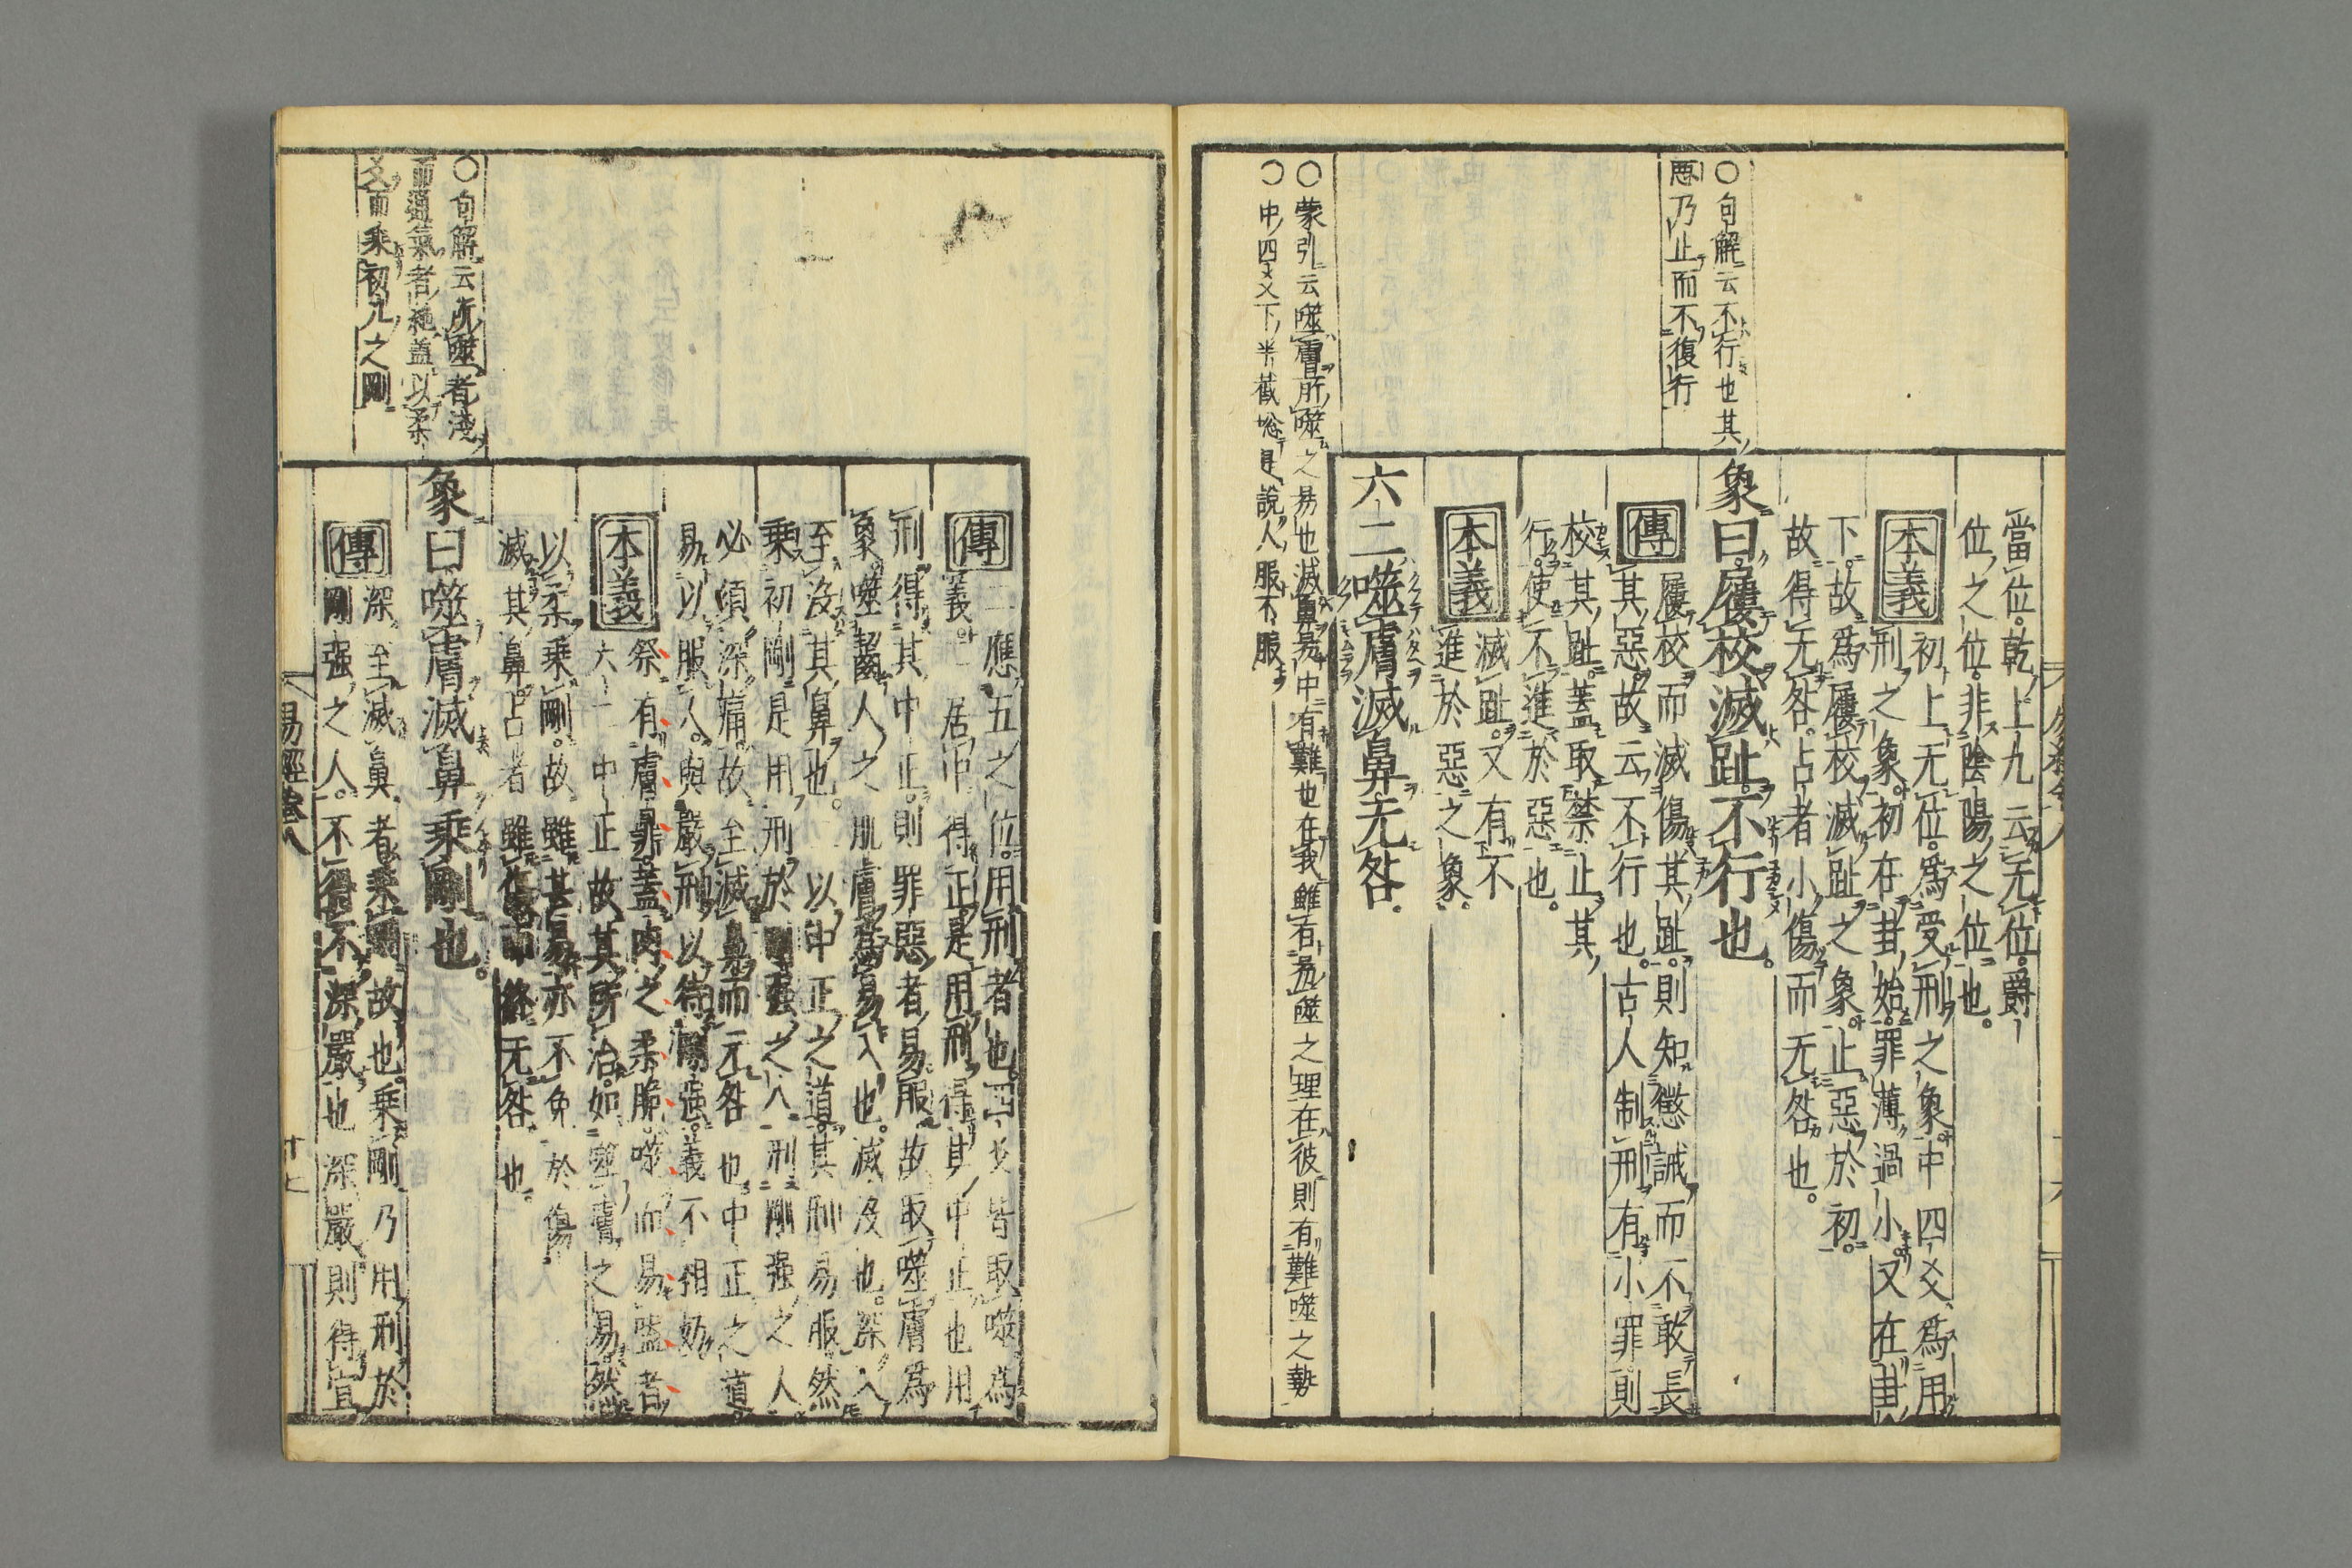 ○句解云不行也其
惡乃止而不復行
當位乾上九云无位爵
位之位非陰陽之位也
本義
初上无位爲受刑之象中四爻爲用
刑之象初在卦始罪薄過小又在卦
下故爲屨校滅趾之象止惡於初
故得无咎占者小傷而无咎也
象曰屨校滅趾不行也
傳
屨校而滅傷其趾則知懲誡而不敢長
其惡故云不行也古人制刑有小罪則
校其趾蓋取禁止其
行使不進於惡也
本義
滅趾又有不
進於惡之象
六二噬膚滅鼻无咎
○蒙引云噬膚所噬之易也滅鼻易中有難也在我雖有易噬之理在彼則有難噬之勢
○中四爻下半截總是說人服不服
傳
二應五之位用刑者也四爻皆取噬爲
義二居中得正是用刑得其中正也用
刑得其中正則罪惡者易服故取噬膚爲
象噬齧人之肌膚爲易入也滅沒也深入
至沒其鼻也二以中正之道其刑易服然
乘初剛是用刑於剛强之人刑剛强之人
必須深痛故至滅鼻而无咎也中正之道
易以服人與嚴刑以待剛强義不相妨
本義
祭有膚鼎蓋肉之柔脆噬而易嗑者
六二中正故其所治如噬膚之易然
以柔乘剛故雖甚易亦不免於傷
滅其鼻占者雖傷而終无咎也
○句解云所噬者淺
而通氣者絶蓋以柔
爻而乘初九之剛
象曰噬膚滅鼻乘剛也
傳
深至滅鼻者乘剛故也乘剛乃用刑於
剛强之人不得不深嚴也深嚴則得宜
易經卷八
十七